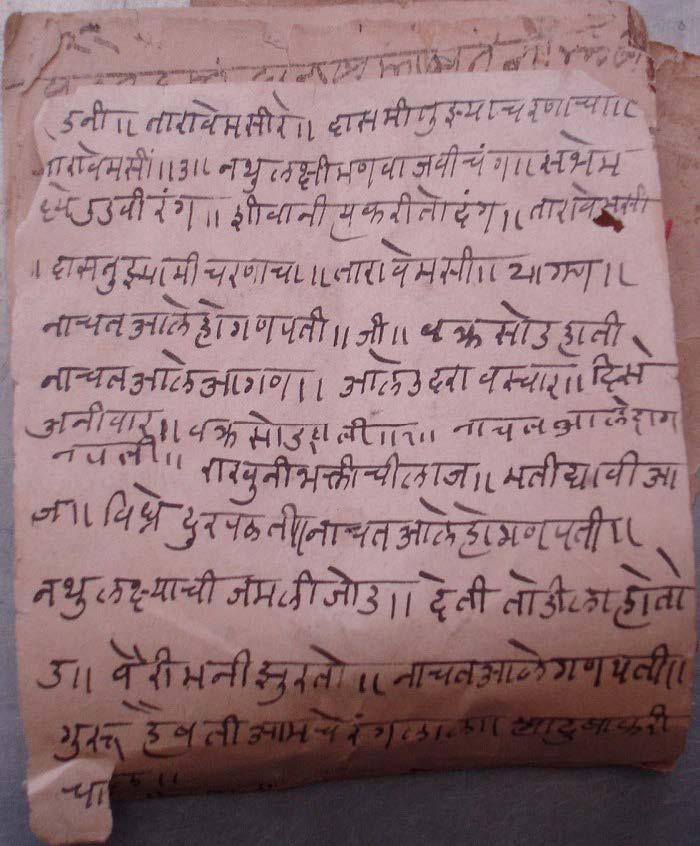 डनी॥ तारावेमसीरे॥ दासमीतुझ्याचरणाचा॥
तारावेमसीं॥३॥ नथुलक्षीमणवाजवीचंग॥ सभेम
ध्येउडवीरंग॥ शीवानी यकरीतोदंग॥ तारावेमसी
॥ दासतुझ्यामीचरणाचा॥ तारावेमसी॥ यागण॥
नाचतआलेहोगणपती॥ जी॥ वक्रसोंडहाती
नाचतआलेआगण॥ आलेउदरावस्वार॥ दिसे
अनीवार॥ वक्रसोंडहाती॥१॥ नाचतआलेहोग
नपती॥ राखुनीभक्तीचीलाज॥ मतीद्यावीआ
ज॥ विघ्ने दुरपळती॥ नाचतआलेहोगणपती॥
नथुलक्ष्याचीजमलीजोड॥ देती तोडीलाहोतो
ड॥ वैरीमनीझुरतो॥ नाचतआलेगणपती॥
गुरुदैवतीआमचेरंगलाला॥ करी